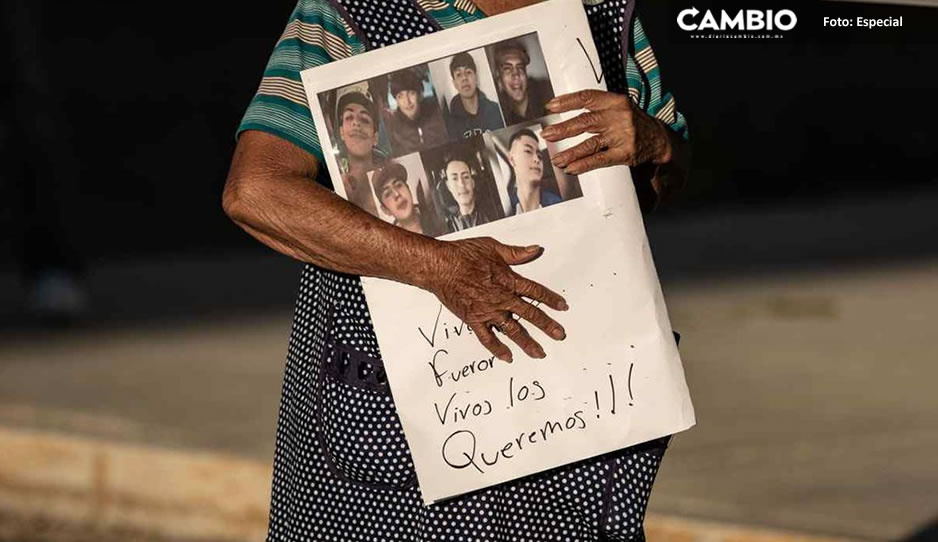 CAMBIO
www.diariocambio.com.mx
Foto: Especial
Vivos los
Queremos!!!